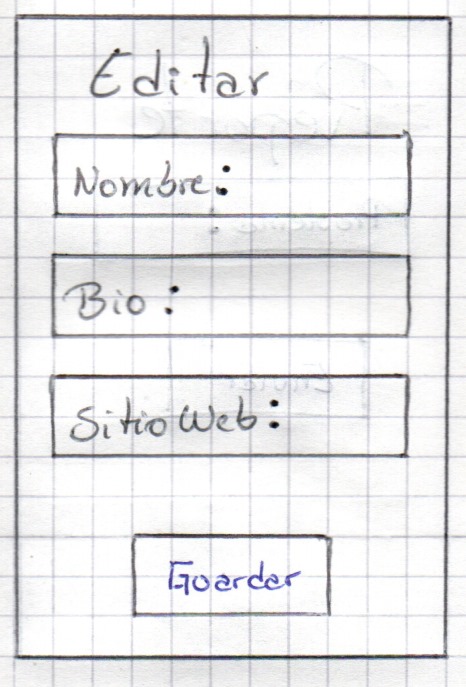 Editar
Nombre:
Bio:
Sitio Web:
Guardar